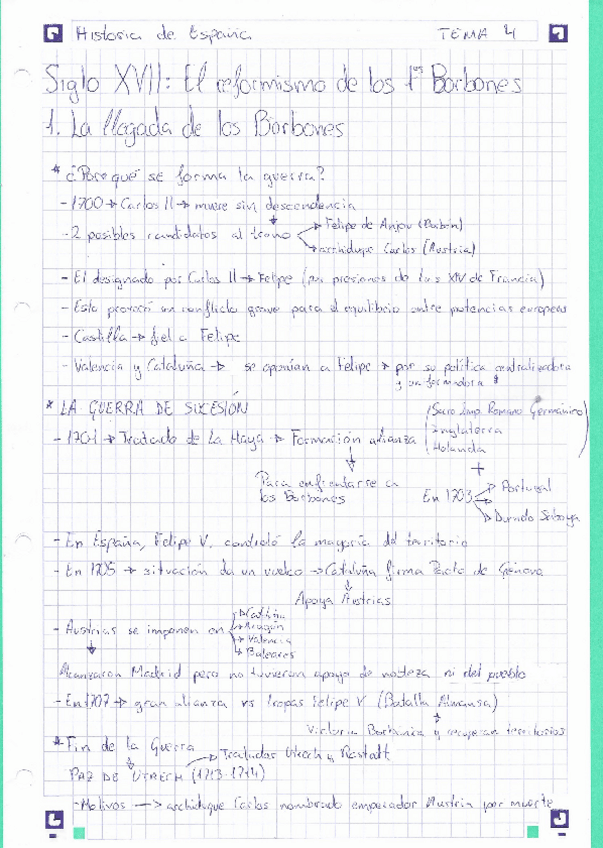 Historia de España TEMA 4
Siglo XVII: El reformismo de los 1os Borbones
1. La llegada de los Borbones
* ¿Por qué se forma la guerra?
- 1700 → Carlos II → muere sin descendencia
- 2 posibles candidatos al trono → Felipe de Anjou (Borbón)
→ archiduque Carlos (Austria)
- El designado por Carlos II → Felipe (por presiones de Luis XIV de Francia)
- Esto provocó un conflicto grave para el equilibrio entre potencias europeas
- Castilla → fiel a Felipe
- Valencia y Cataluña → se oponían a Felipe → por su política centralizadora
y reformadora
* LA GUERRA DE SUCESIÓN
- 1701 → Tratado de La Haya → Formación alianza
(Sacro Imp. Romano Germánico)
Inglaterra
Holanda
+
Para enfrentarse a
los Borbones
En 1703 → Portugal
→ Saboya
- En España, Felipe V. controló la mayoría del territorio
- En 1705 → situación da un vuelco → Cataluña firma Pacto de Génova
Apoya Austrias
- Austrias se imponen en → Cataluña
→ Aragón
→ Valencia
→ Baleares
Alcanzaron Madrid pero no tuvieron apoyo de nobleza ni del pueblo
- En 1707 → gran alianza vs tropas Felipe V (Batalla Almansa)
Victoria Borbónica y recuperan territorios
* Fin de la Guerra
→ Tratados Utrech y Rastatt
PAZ DE UTRECH (1713-1714)
- Motivos → archiduque Carlos nombrado emperador Austria por muerte